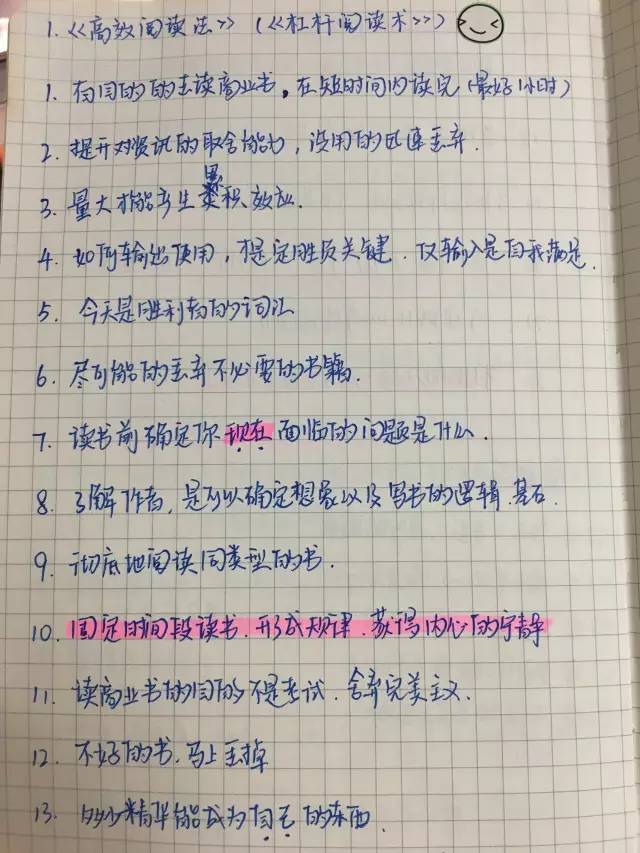 1. <<高效阅读法>> (<<杠杆阅读术>>)
1. 有目的的去读商业书,在短时间内读完(最好1小时)
2. 提升对资讯的取舍能力,没用的迅速丢弃.
3. 量大才能产生累积效应.
4. 如何输出使用,才是定胜负关键.仅输入是自我满足.
5. 今天是胜利者的词汇
6. 尽可能的丢弃不必要的书籍.
7. 读书前确定你现在面临的问题是什么.
8. 了解作者,是可以确定想象以及写书的逻辑.基石.
9. 彻底地阅读同类型的书.
10. 固定时间段读书.形成规律.获得内心的宁静
11. 读商业书的目的不是考试.舍弃完美主义.
12. 不好的书.马上丢掉
13. 精华能成为自己的东西.